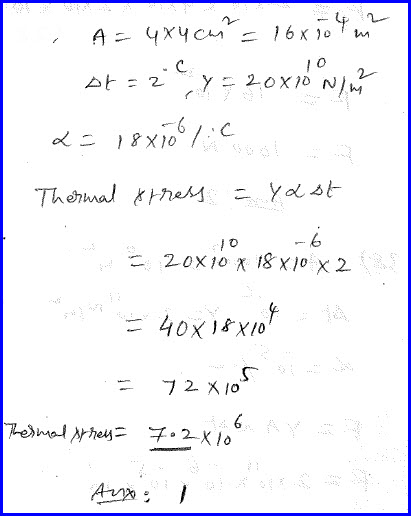 A = 4x4cm² = 16x10⁻⁴m²
Δt = 2°C, Y = 20x10¹⁰ N/m²
α = 18x10⁻⁶/°C
Thermal stress = YαΔt
= 20x10¹⁰ x 18x10⁻⁶ x 2
= 40x18x10⁴
= 72x10⁵
Thermal stress = 7.2x10⁶
Ans: 1